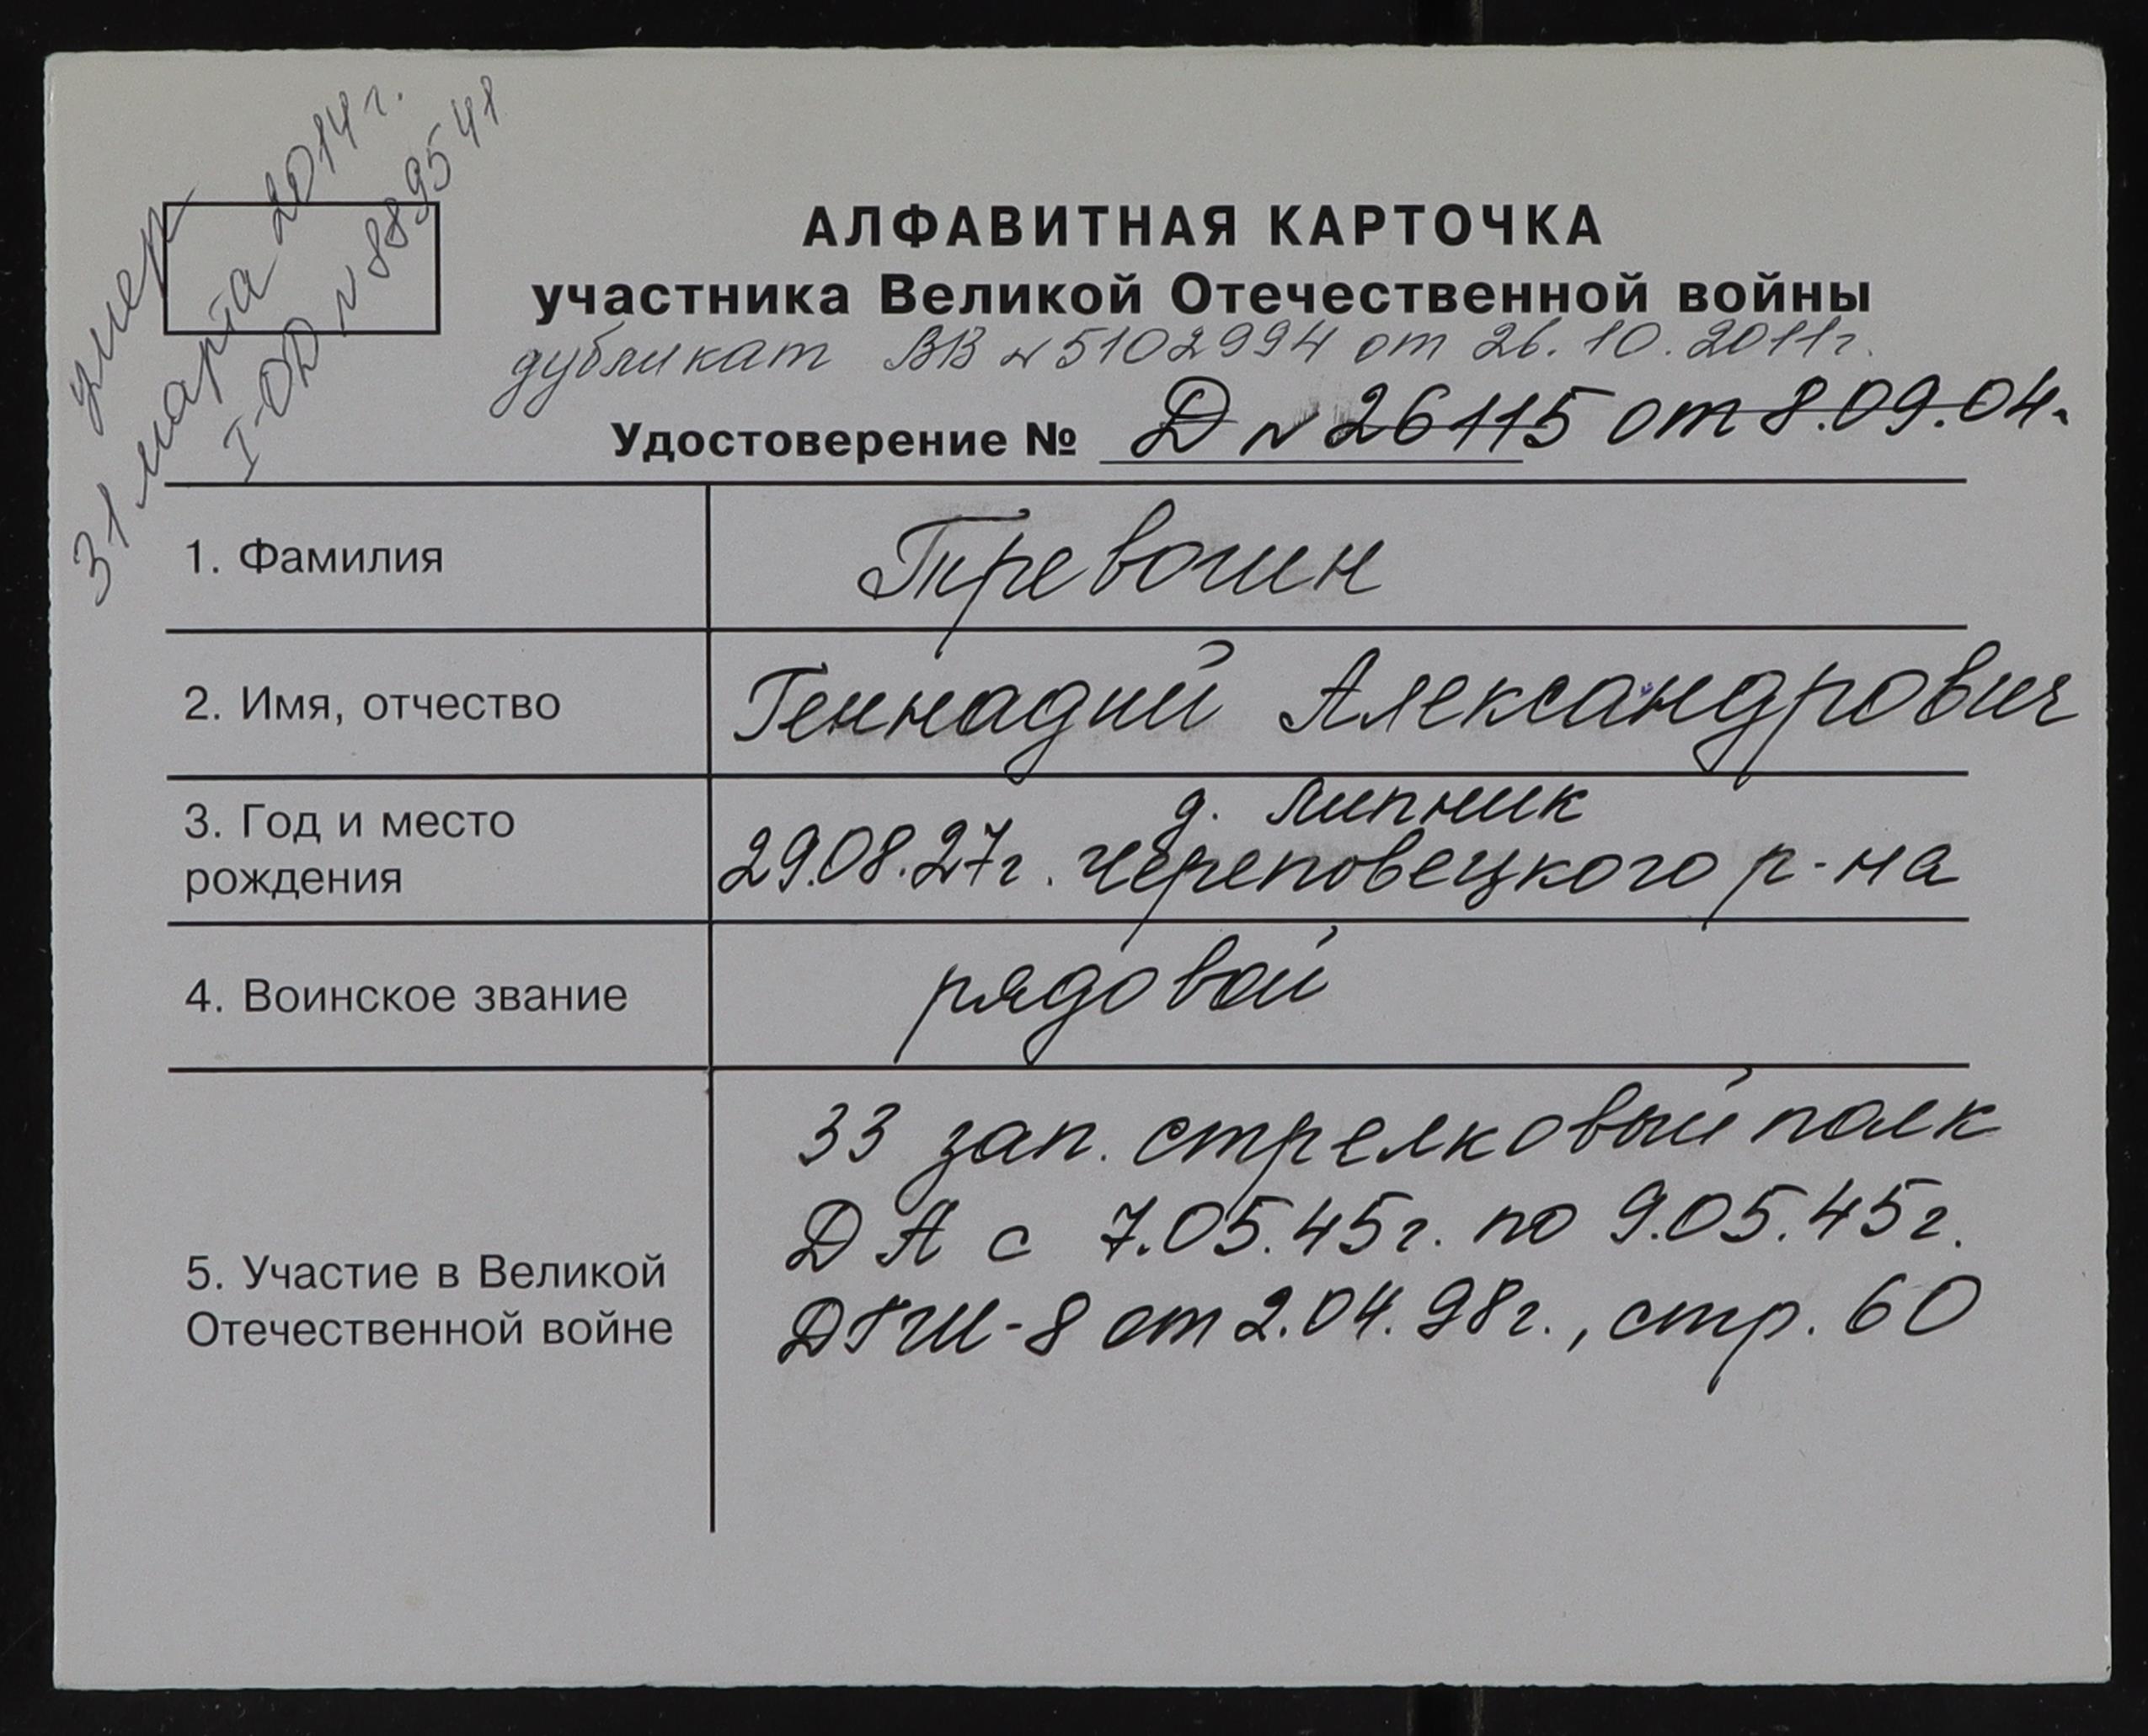 умер
31 марта 2014 г.
I-ОД N 889541
АЛФАВИТНАЯ КАРТОЧКА
участника Великой Отечественной войны
дубликат ВВ N 5102994 от 26.10.2011г.
Удостоверение № Д N 26115 от 8.09.04г
1. Фамилия
Тревошин
2. Имя, отчество
Геннадий Александрович
3. Год и место
рождения
д. Липник
29.08.27г. Череповецкого р-на
4. Воинское звание
рядовой
5. Участие в Великой
Отечественной войне
33 зап. стрелковый полк
ДА с 7.05.45г. по 9.05.45г.
ДГШ-8 от 2.04.98г., стр. 60